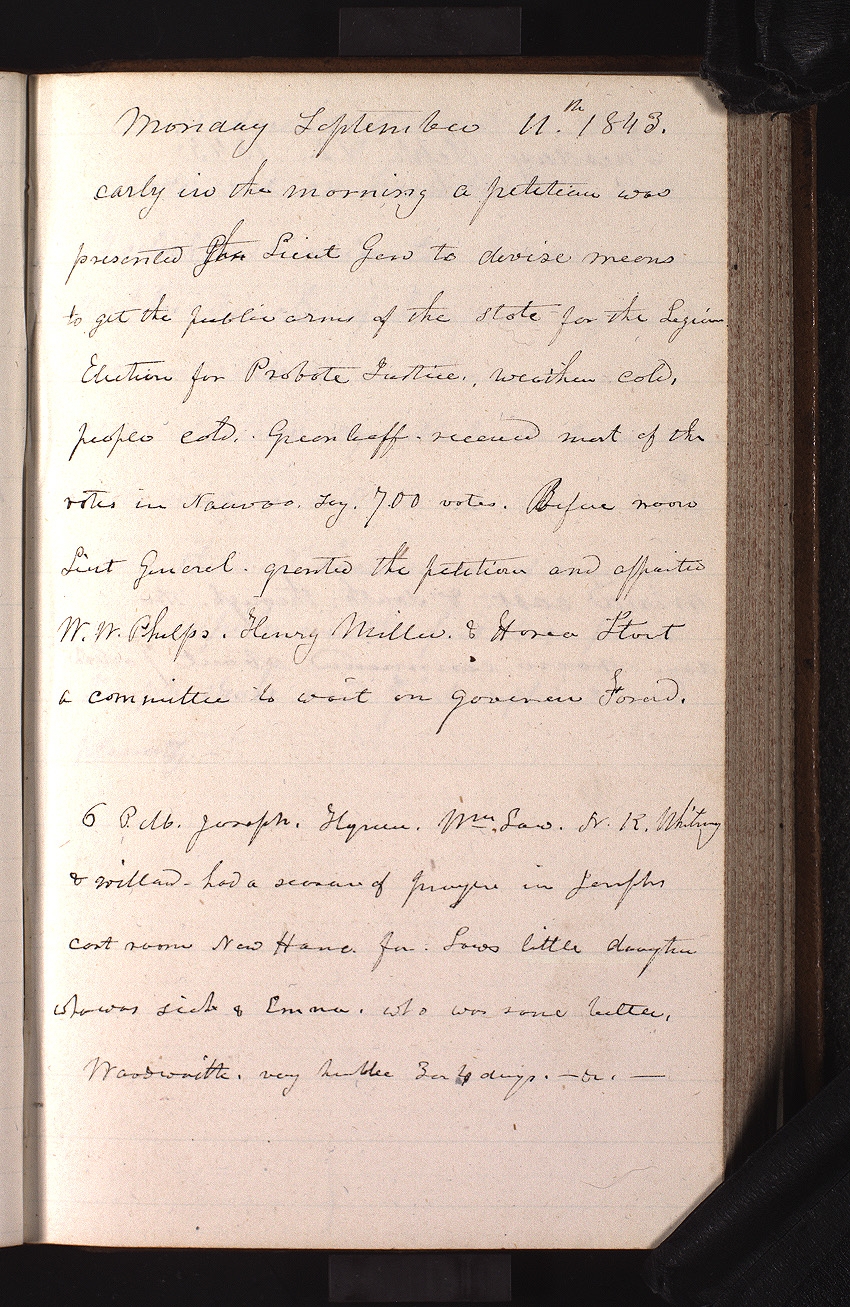 Monday September 11.th 1843.
early in the morning a petition was
presented the Lieut Gen to devise means
to get the public arms of the state for the Legion
Election for Probate Justice., weather cold,
people cold. Greenleaff. received most of the
votes in Nauvoo. say. 700 votes. Before noon
Lieut General. granted the petition and appointed
W. W. Phelps. Henry Miller. & Hosea Stout
a committee to wait on governer Ford.
6 P.M. Joseph. Hyrum. Wm Law. N. K. Whitney
& willard- had a season of prayer in Josephs
east room New Hanc. for. Laws little daughter
who was sick & Emma. who was some better.
Woodworth. very humble 3 or 4 days. —&c. —